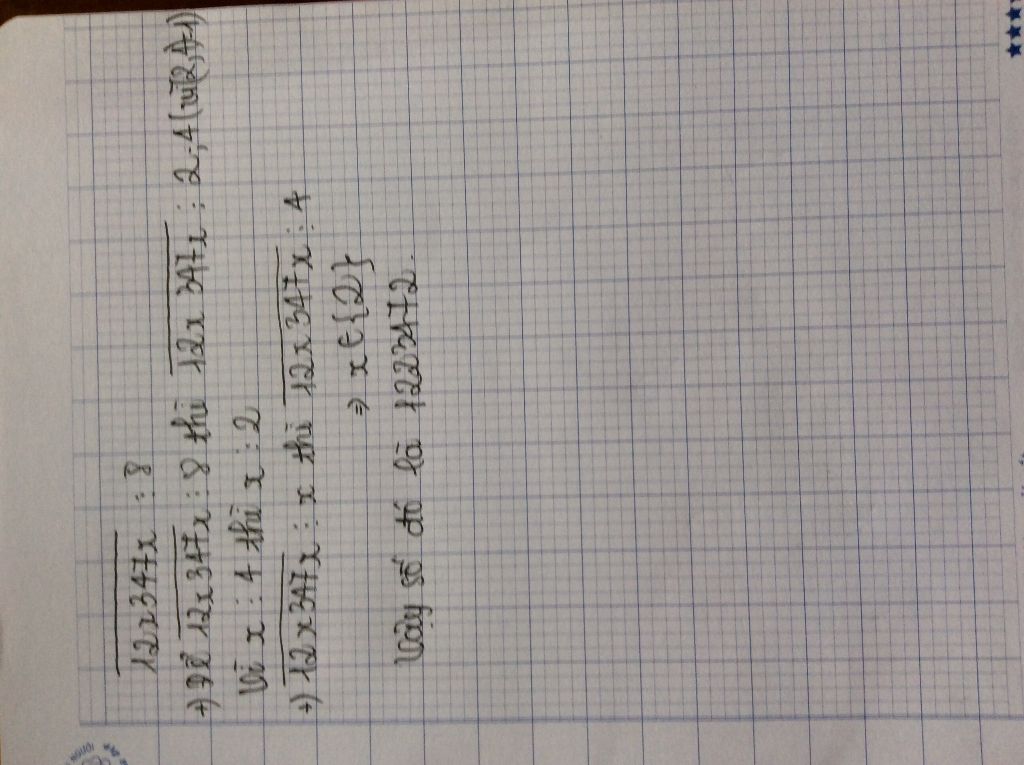 12x347x ⋮ 8
+) Để 12x347x ⋮ 8 thì 12x347x ⋮ 2; 4 (vì (2,4)=1)
Vì x ⋮ 4 thì x ⋮ 2
+) 12x347x ⋮ x thì 12x347x ⋮ 4
⇒ x ∈ {2}
Vậy số đó là 1223472.